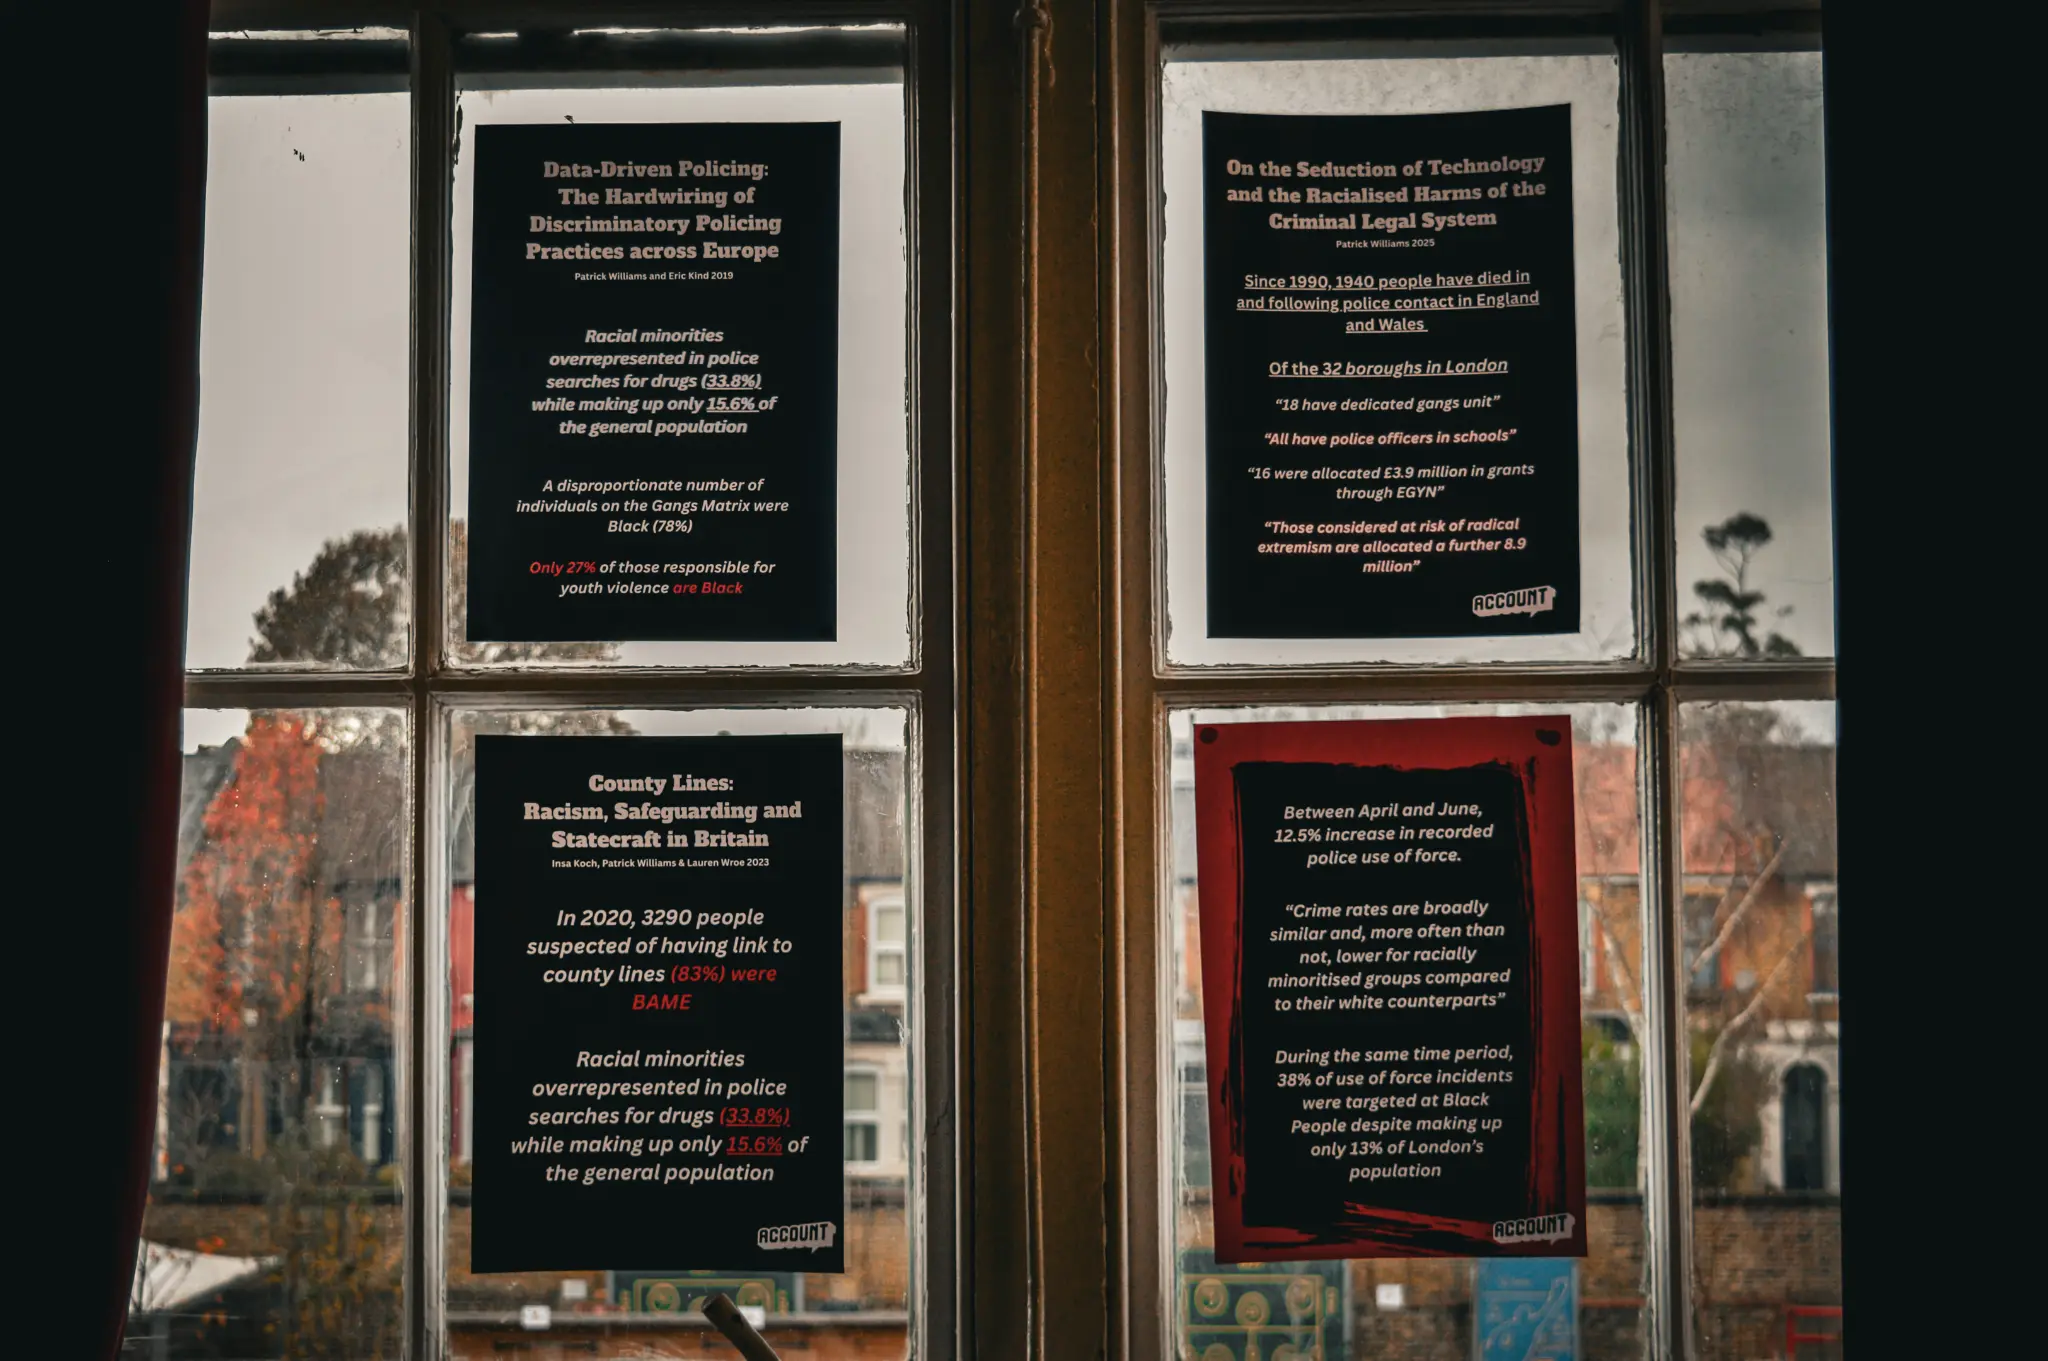 Data-Driven Policing:
The Hardwiring of
Discriminatory Policing
Practices across Europe
Patrick Williams and Eric Kind 2019
Racial minorities
overrepresented in police
searches for drugs (33.8%)
while making up only 15.6% of
the general population
A disproportionate number of
individuals on the Gangs Matrix were
Black (78%)
Only 27% of those responsible for
youth violence are Black
On the Seduction of Technology
and the Racialised Harms of the
Criminal Legal System
Patrick Williams 2025
Since 1990, 1940 people have died in
and following police contact in England
and Wales
Of the 32 boroughs in London
“18 have dedicated gangs unit”
“All have police officers in schools”
“16 were allocated £3.9 million in grants
through EGYN”
“Those considered at risk of radical
extremism are allocated a further 8.9
million”
ACCOUNT
County Lines:
Racism, Safeguarding and
Statecraft in Britain
Insa Koch, Patrick Williams & Lauren Wroe 2023
In 2020, 3290 people
suspected of having link to
county lines (83%) were
BAME
Racial minorities
overrepresented in police
searches for drugs (33.8%)
while making up only 15.6% of
the general population
ACCOUNT
Between April and June,
12.5% increase in recorded
police use of force.
“Crime rates are broadly
similar and, more often than
not, lower for racially
minoritised groups compared
to their white counterparts”
During the same time period,
38% of use of force incidents
were targeted at Black
People despite making up
only 13% of London's
population
ACCOUNT